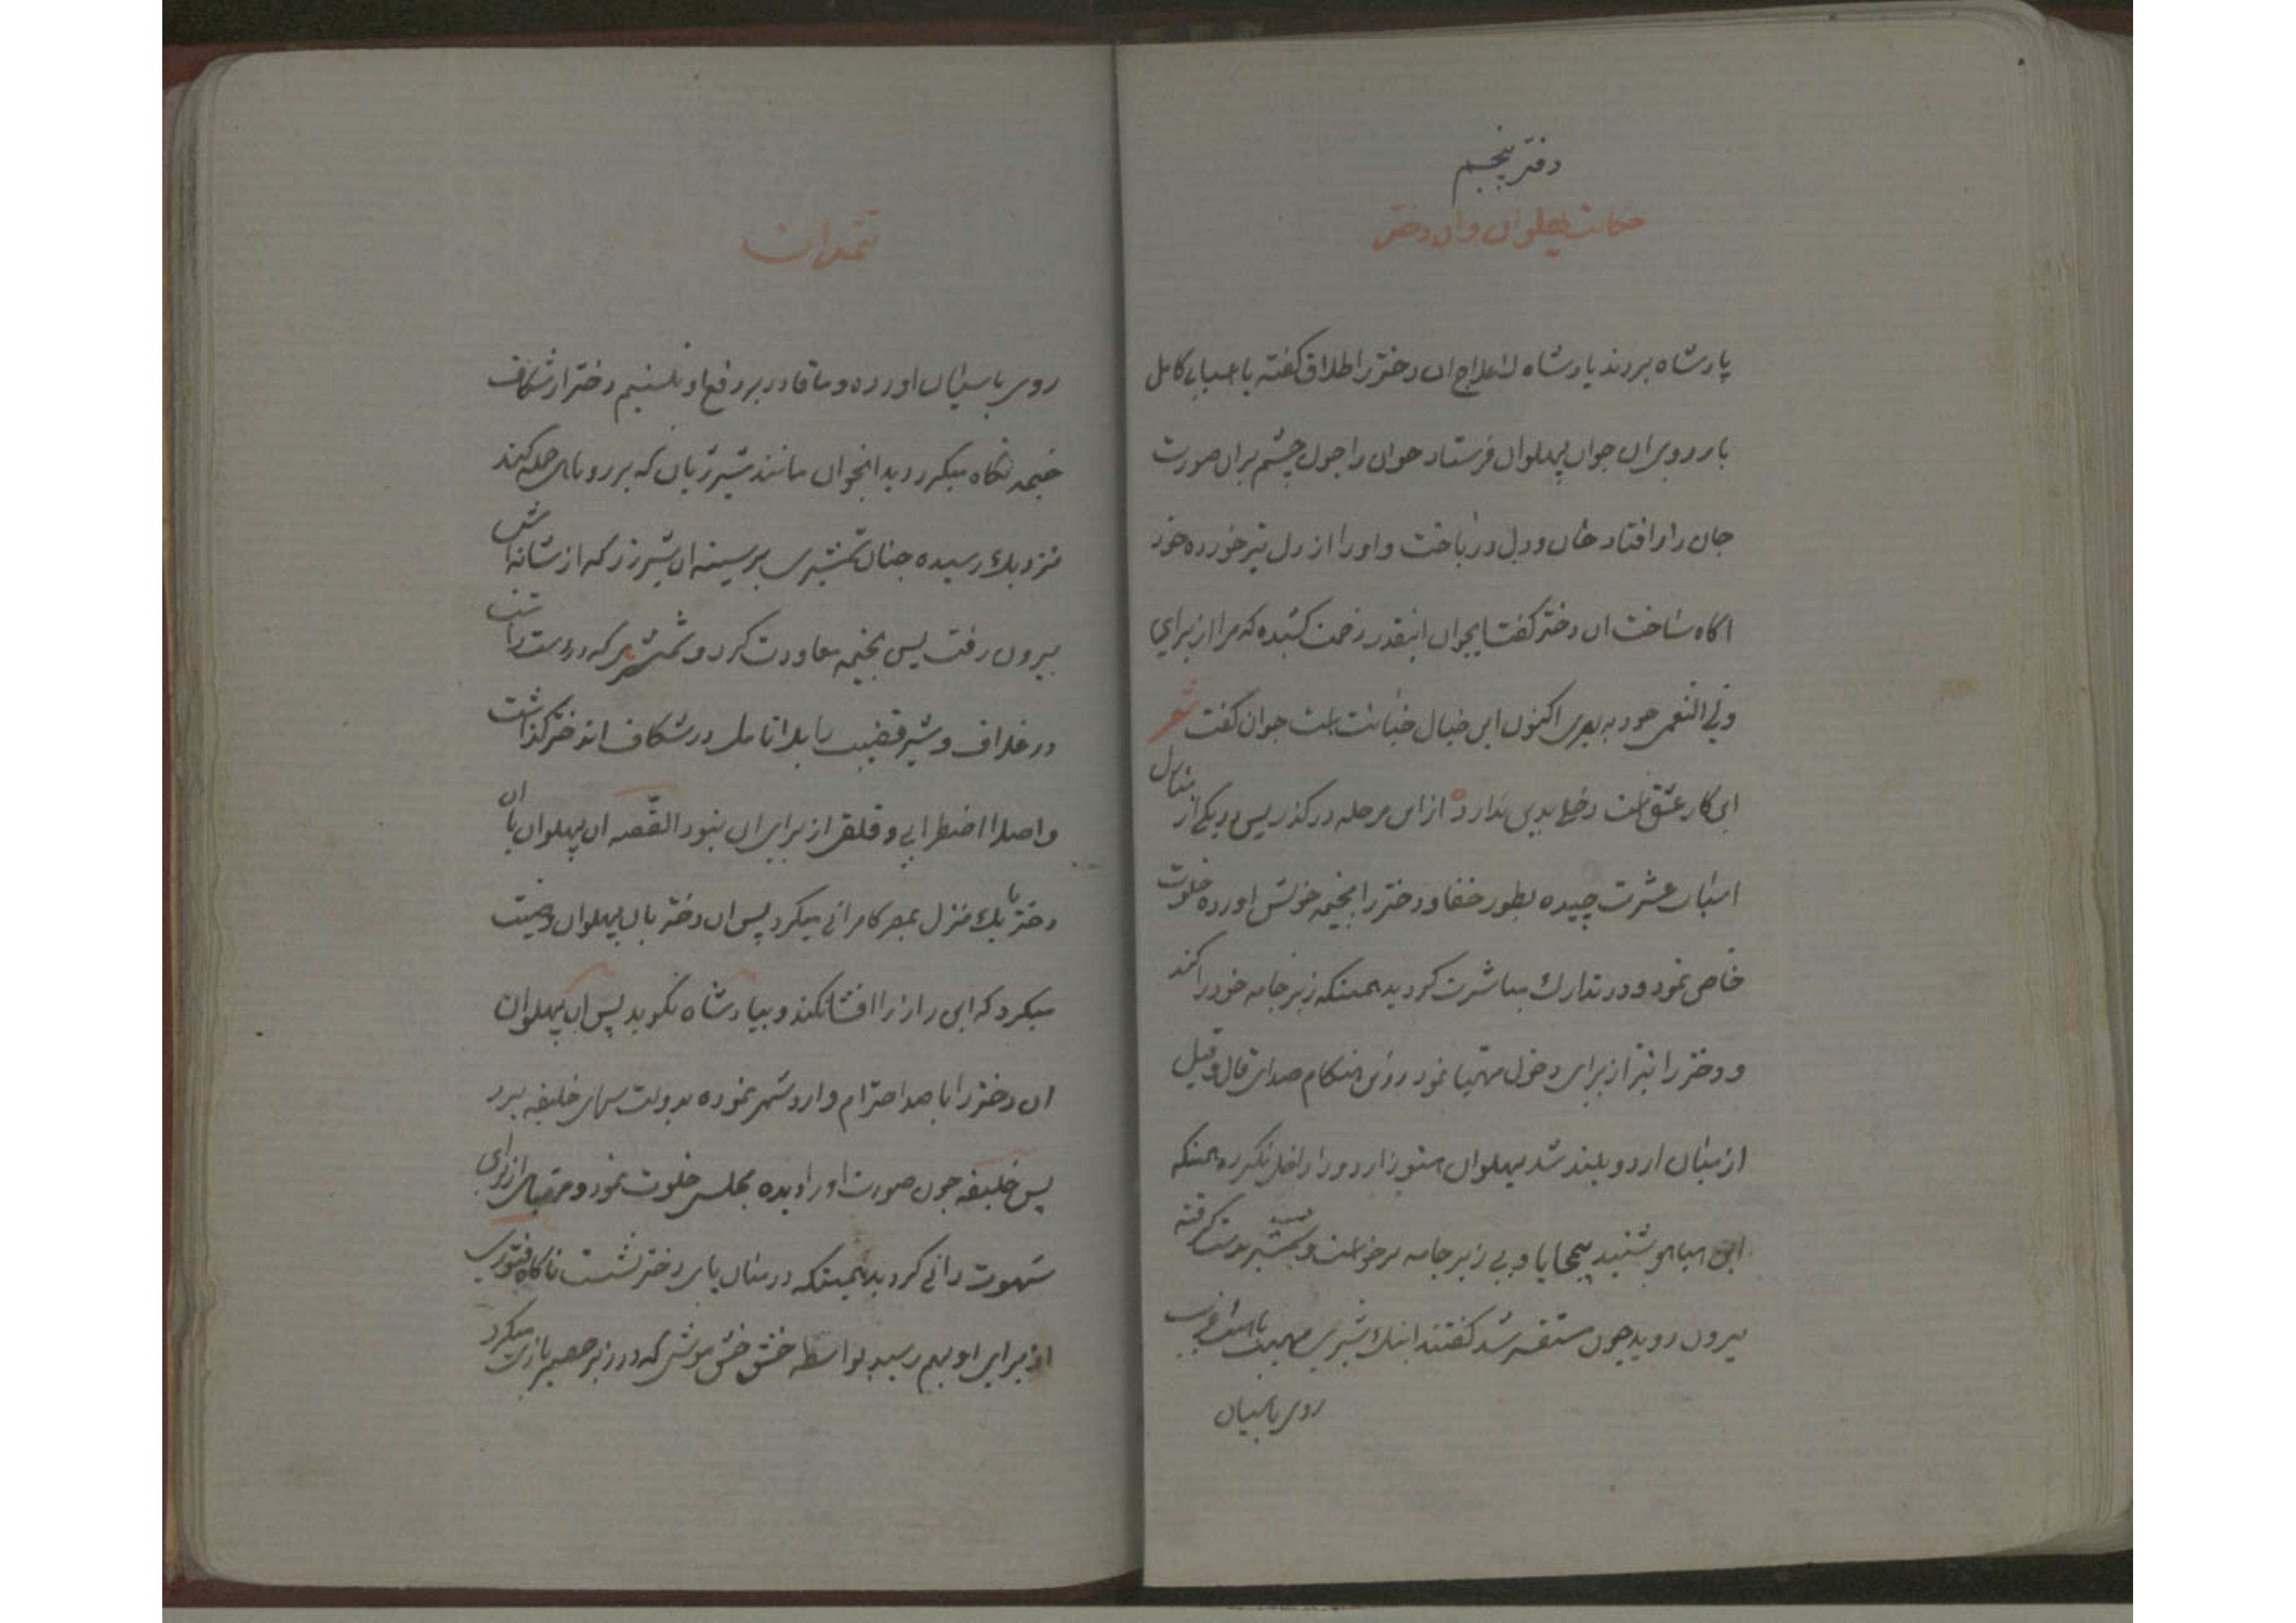 دفتر پنجم
حکایت پهلوان و ان دختر
پادشاه بردند پادشاه لاعلاج ان دختر را طلاق گفته با اسبابی کامل
باردوی ان جوان پهلوان فرستاد جوان را چون چشم بران صورت
جان دار افتاد جان و دل در باخت و او را از دل تیر خورده خود
اکاه ساخت ان دختر گفت ایجوان اینقدر زحمت کشیده که مرا از برای
ولی النعمی خود به بری اکنون این خیال خیانت است جوان گفت شعر
این کار عشق است دخلی بدین ندارد از این مرحله در گذر پس در یکی از منازل
اسباب عشرت چیده بطور خفا و دختر را بخیمه خویش اورده خلوت
خاص نمود و در تدارک مباشرت گردید همینکه زیر جامه خود را کند
و دختر را نیز از برای دخول مهیا نمود در این هنکام صدای قال و قیل
از میان اردو بلند شد پهلوان هنوز را داخل نکرده همینکه
این هیاهو شنید بیمحابا و بی زیر جامه برخواست و شمشیر بدست گرفته
بیرون دوید چون مستفسر شد گفتند اینک شیری مهیب
روی باسبان
تتمه ان
روی باسبان اورده و ما قادر بر دفع او نیستیم دختر از شکاف
خیمه نگاه میکرد دید انجوان مانند شیر ژیان که بر روباهی حمله کند
نزدیک رسیده چنان شمشیری بر سینه ان شیر زد که از شانه اش
بیرون رفت پس بخیمه معاودت کرد و شمشیر که در دست داشت
در غلاف و شیر قضیب را بلا تامل در شکاف اندختر گذاشت
و اصلا اضطرابی و قلقی از برای ان نبود القصه ان پهلوان با ان
دختر تا یک منزل بمصر کامرانی میکرد پس ان دختر بان پهلوان وصیت
میکرد که این راز را افشا نکند و بپادشاه نگوید پس ان پهلوان
ان دختر را با صد احترام وارد شهر نموده بدولت سرای خلیفه برد
پس خلیفه چون صورت او را دیده مجلس خلوت نمود و مهیای از برای
شهوت رانی گردید همینکه در میان پای دختر نشست ناگاه فتوری
از برای او بهم رسید بواسطه خش خش موشی که در زیر حصیر بازی میکرد